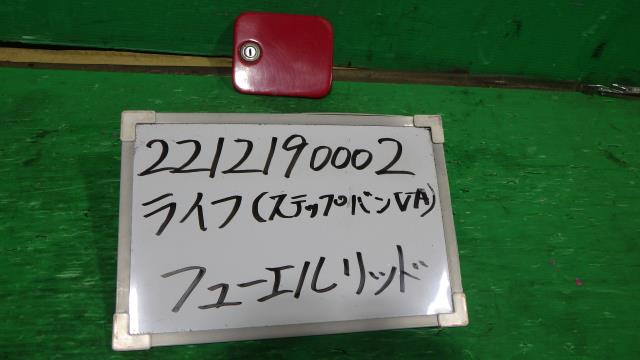 2212190002
ライフ(ステップバンVA)
フューエルリッド